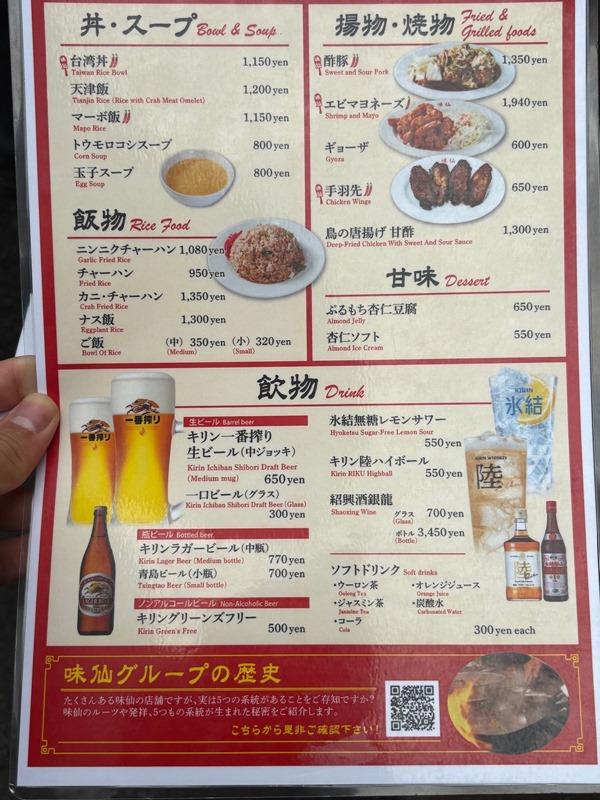 丼・スープ Bowl & Soup
台湾丼 1,150yen
Taiwan Rice Bowl
天津飯 1,200yen
Tianjin Rice (Rice with Crab Meat Omelet)
マーボ飯 1,150yen
Mapo Rice
トウモロコシスープ 800yen
Corn Soup
玉子スープ 800yen
Egg Soup
飯物 Rice Food
ニンニクチャーハン 1,080yen
Garlic Fried Rice
チャーハン 950yen
Fried Rice
カニ・チャーハン 1,350yen
Crab Fried Rice
ナス飯 1,300yen
Eggplant Rice
ご飯 (中) 350yen (小) 320yen
Bowl Of Rice (Medium) (Small)
揚物・焼物 Fried & Grilled foods
酢豚 1,350yen
Sweet and Sour Pork
エビマヨネーズ 1,940yen
Shrimp and Mayo
味仙
ギョーザ 600yen
Gyoza
味仙
手羽先 650yen
Chicken Wings
鳥の唐揚げ 甘酢 1,300yen
Deep-Fried Chicken With Sweet And Sour Sauce
甘味 Dessert
ぷるもち杏仁豆腐 650yen
Almond Jelly
杏仁ソフト 550yen
Almond Ice Cream
飲物 Drink
一番搾り
一番搾り
生ビール Barrel beer
キリン一番搾り
生ビール(中ジョッキ)
Kirin Ichiban Shibori Draft Beer
(Medium mug) 650yen
一口ビール(グラス)
Kirin Ichiban Shibori Draft Beer (Glass)
300yen
瓶ビール Bottled beer
キリンラガービール(中瓶)
Kirin Lager Beer (Medium bottle) 770yen
青島ビール(小瓶) 700yen
Tsingtao Beer (Small bottle)
ノンアルコールビール Non-Alcoholic Beer
キリングリーンズフリー
Kirin Green's Free 500yen
氷結無糖レモンサワー
Hyoketsu Sugar-Free Lemon Sour
550yen
キリン陸ハイボール
Kirin RIKU Highball 550yen
紹興酒銀龍 グラス 700yen
Shaoxing Wine (Glass)
ボトル 3,450yen
(Bottle)
KIRIN
氷結
KIRIN WHISKEY
陸
陸
ソフトドリンク Soft drinks
・ウーロン茶 ・オレンジジュース
Oolong Tea Orange Juice
・ジャスミン茶 ・炭酸水
Jasmine Tea Carbonated Water
・コーラ
Cola 300yen each
味仙グループの歴史
たくさんある味仙の店舗ですが、実は5つの系統があることをご存知ですか?
味仙のルーツや発祥、5つもの系統が生まれた秘密をご紹介します。
こちらから是非ご確認下さい!